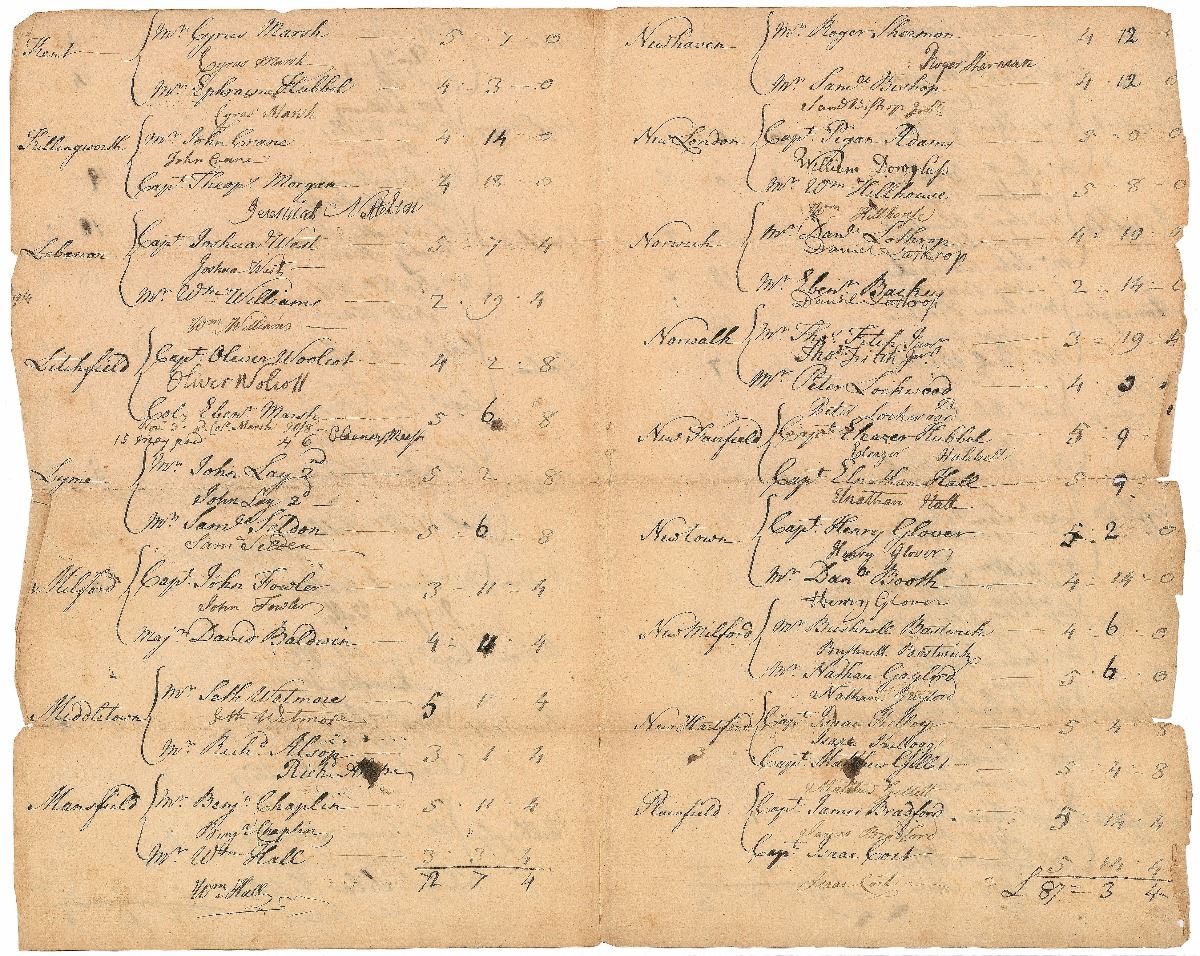 Kent Mr. Cyrus Marsh 5 7 0
Cyrus Marsh
Mr. Ephraim Hubbel 4 3 0
Cyrus Marsh
Killingworth Mr. John Crane 4 14 0
John Crane
Capt. Theop. Morgan 4 18 0
Jeremiah
Lebanon Capt. Joshua West 5 7 4
Joshua West
Mr. Wm. Williams 2 19 4
Wm Williams
Litchfield Capt. Oliver Woolcot 4 2 8
Oliver Wolcott
Col. Ebenr. Marsh 5 6 8
15 4 6
Lyme Mr. John Lay 2d 5 2 8
John Lay 2d
Mr. Saml. Seldon 5 6 8
Saml. Selden
Milford Capt. John Fowler 3 11 4
John Fowler
Majr. David Baldwin 4 11 4
Middletown Mr. Seth Wetmore 5 1 4
Seth Wetmore
Mr. Richd. Alsop 3 1 4
Richd. Alsop
Mansfield Mr. Benj. Chaplin 5 11 4
Benja. Chaplin
Mr. Wm. Hall 3 3 4
Wm Hall 72 7 4
Newhaven Mr. Roger Sherman 4 12
Roger Sherman
Mr. Saml. Bishop 4 12 0
Saml Bishop
New London Capt. Pigan Adams 0 0
William Douglass
Mr. Wm. Hillhouse 5 8 0
Wm Hillhouse
Norwich Mr. Danl. Lothrop 4 19 4
Daniel Lathrop
Mr. Ebenr. Backus 2 14
Daniel Lathrop
Norwalk Mr. Thos. Fitch Junr. 3 19 4
Thos. Fitch Junr.
Mr. Peter Lockwood 4 3
Peter Lockwood
New Fairfield Capt. Eleazer Hubbel 5 9
Hubbell
Capt. Elnathan Hall 5 9
Elnathan Hall
Newtown Capt. Henry Glover 5 2 0
Henry Glover
Mr. Danl. Booth 4 14 0
Henry Glover
New Milford Mr. Bushnell Bostwick 4 6 0
Bushnell Bostwick
Mr. Nathan Gaylord 5 6 0
Nathan Gaylord
New Hartford Capt. Isaac Kellogg 5 4 8
Isaac Kellogg
Capt. Matthew Gillet 5 4 8
Matthew Gillett
Plainfield Capt. James Bradford 5 14 4
James Bradford
Capt. Isaac Coit 5 14 4
Isaac Coit £ 87 3 4